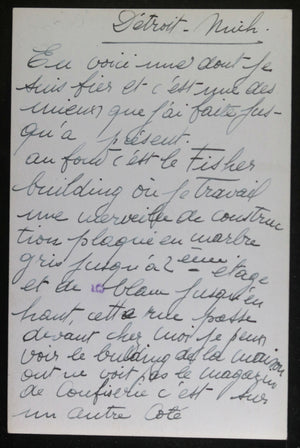 Détroit - Mich.
En voici une dont je
suis fier et c'est une des
mieux que j'ai faite jus-
qu'a présent.
au fond c'est le Fisher
building où je travail
une merveille de construc
tion plaqué en marbre
gris jusqu'à 2ème étage
et de blanc jusqu'en
haut, cette rue passe
devant chez moi je peux
voir le building de la maison
ont ne voit pas le magazin
de Confiserie c'est sur
un autre coté